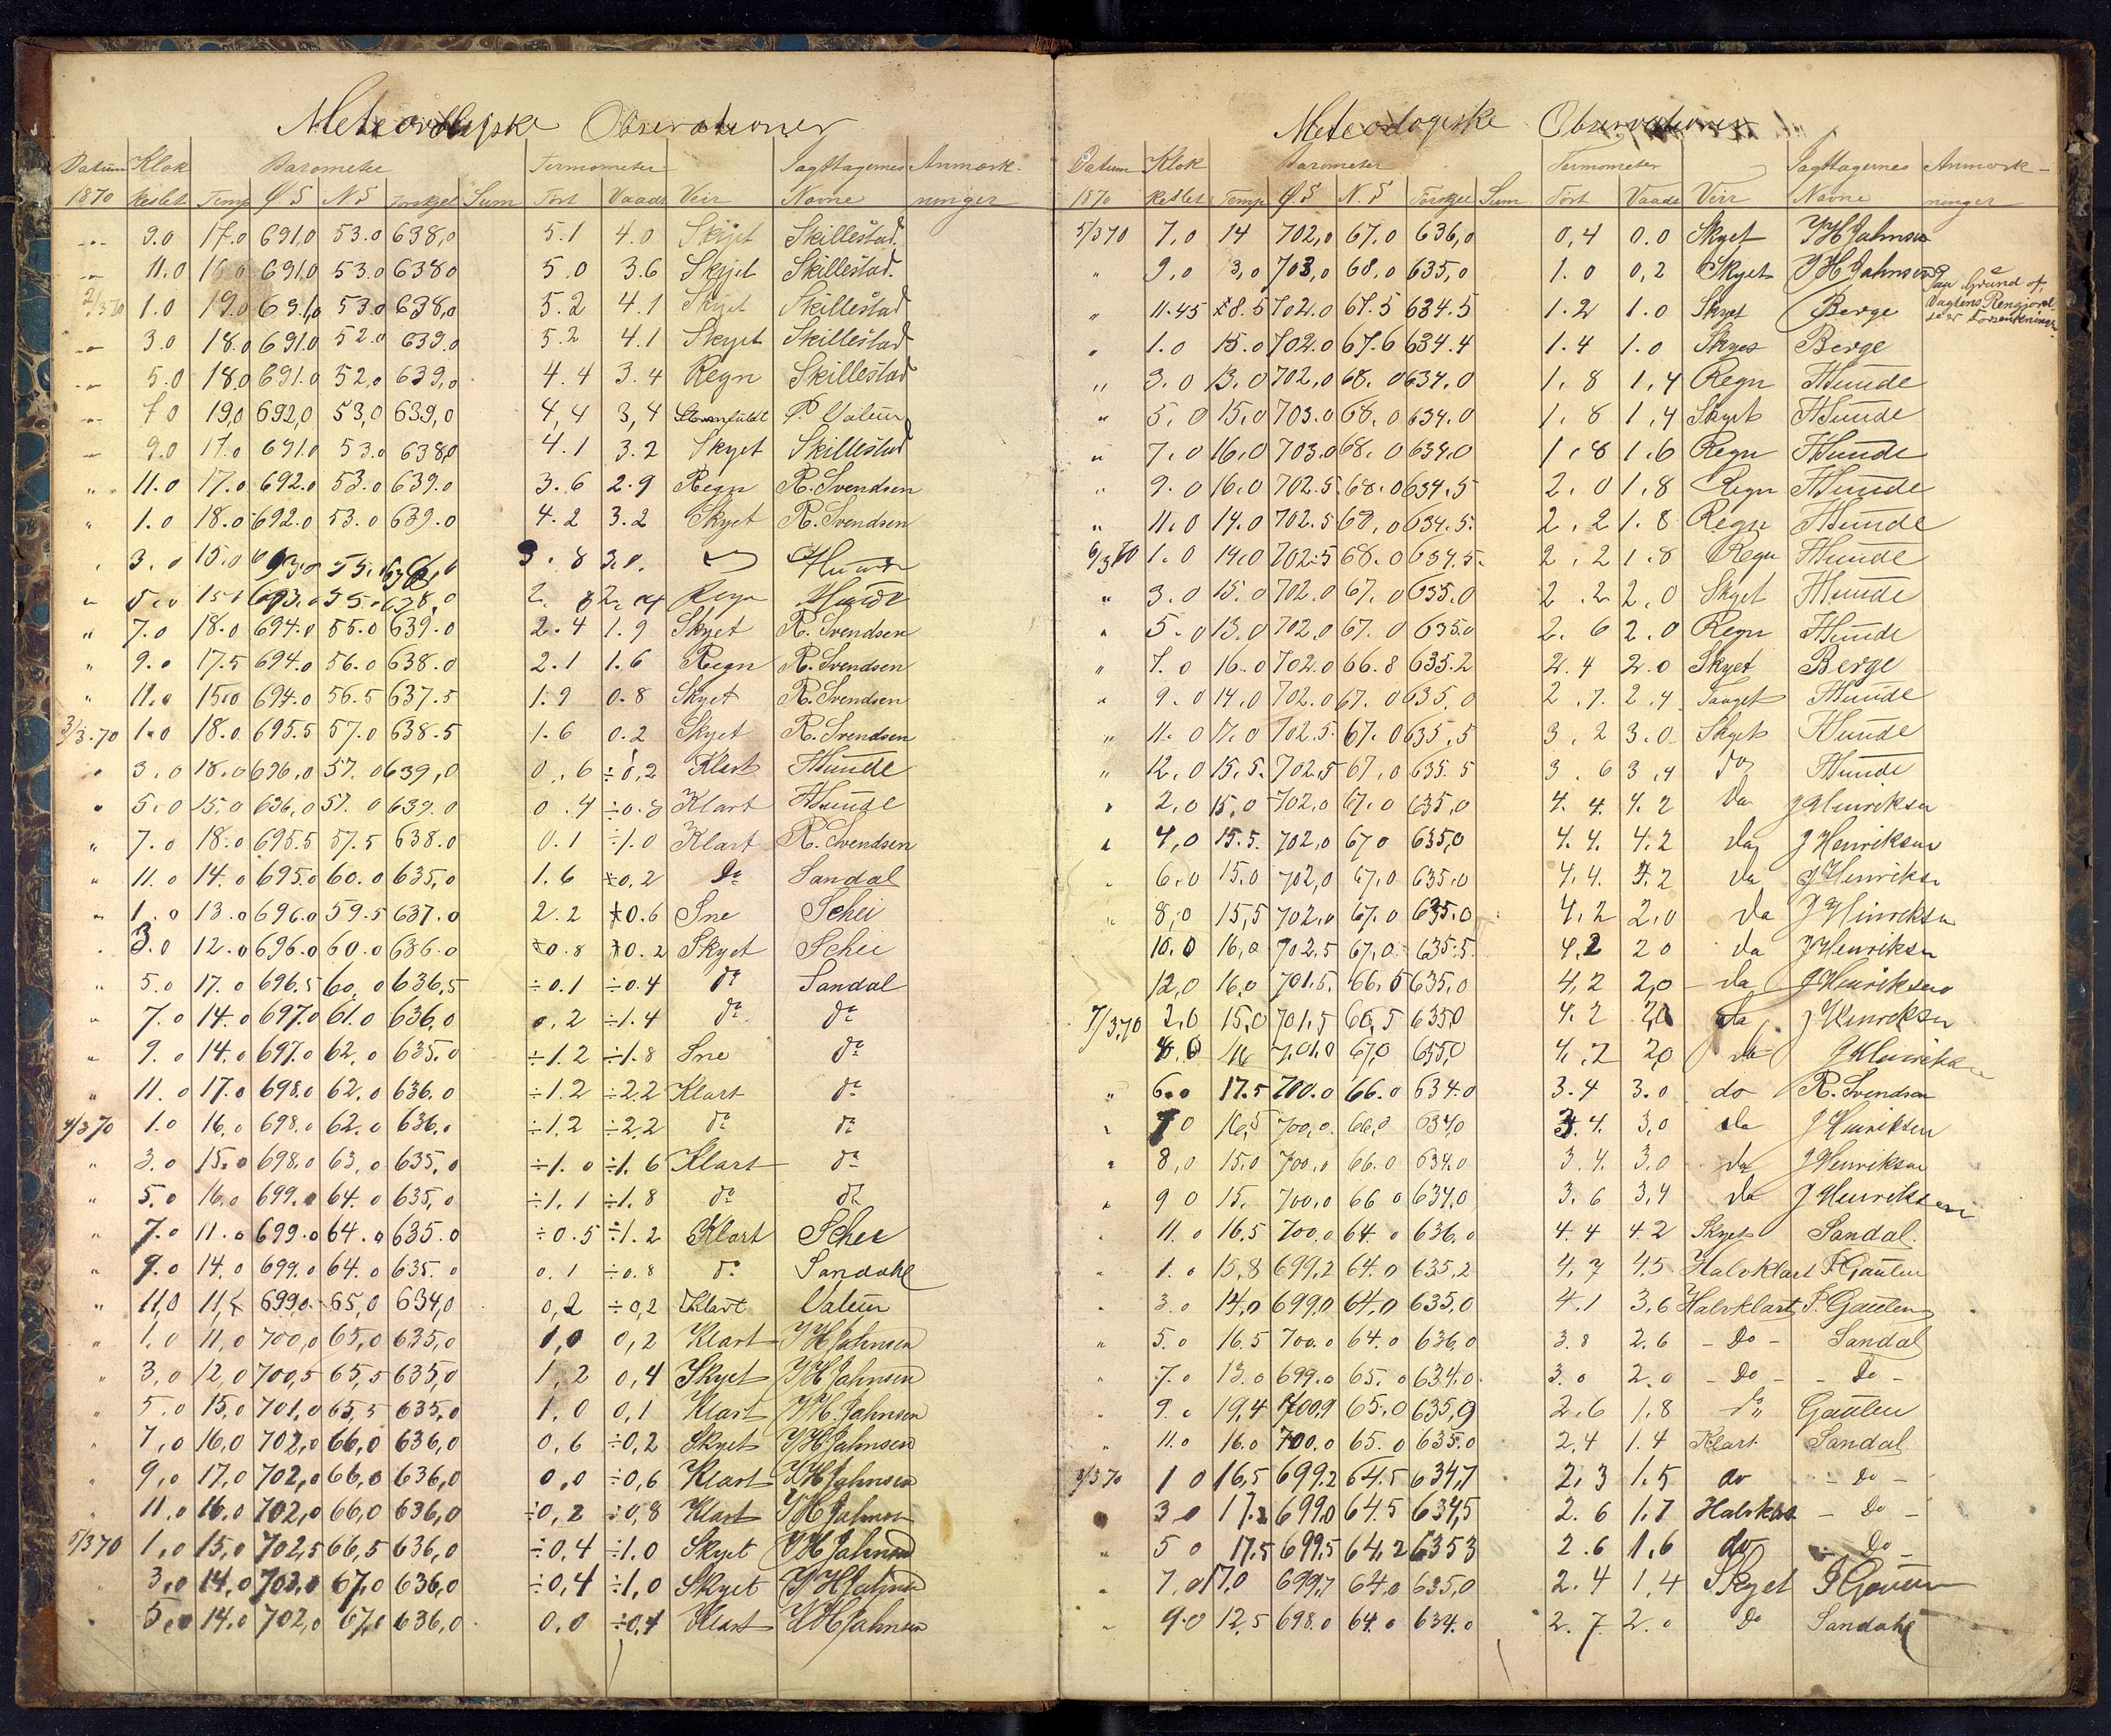 Meteorologiske Observationer
Datum Klok Barometer Termometer Iagttagernes Anmærk-
1870 keslet Temp Ø S N S Forskjel Sum Tørt Vaadt Veir Navne ninger
-"- 9.0 17.0 691.0 53.0 638,0 5.1 4.0 Skyet Skillestad.
-"- 11.0 16.0 691.0 53.0 638.0 5.0 3.6 Skyet Skillestad.
2/3 70 1.0 19.0 691,0 53.0 638,0 5.2 4.1 Skyet Skillestad
-"- 3.0 18.0 691.0 52.0 639.0 5.2 4.1 Skyet Skillestad
-"- 5.0 18.0 691.0 52,0 639,0 4.4 3.4 Regn Skillestad
-"- 7 0 19,0 692,0 53,0 639,0 4,4 3,4 P. Valeur
-"- 9.0 17.0 691.0 53.0 638,0 4.1 3.2 Skyet Skillestad
" 11.0 17.0 692.0 53.0 639.0 3.6 2.9 Regn R. Svendsen
" 1.0 18.0 692.0 53.0 639.0 4.2 3.2 Skyet R. Svendsen
" 3.0 15.0 693.0 55. 3.8 3.0. Hunde
" 5.0 15.0 693.0 55.0 638,0 2.8 2.4 Regn Hunde
" 7.0 18.0 694.0 55.0 639.0 2.4 1.9 Skyet R. Svendsen
" 9.0 17.5 694.0 56.0 638.0 2.1 1.6 Regn R. Svendsen
" 11.0 15.0 694.0 56.5 637.5 1.9 0.8 Skyet R. Svendsen
3/3.70 1.0 18.0 695.5 57.0 638.5 1.6 0.2 Skyet R. Svendsen
" 3.0 18.0 696.0 57.0 639,0 0.6 ÷0,2 Klart Hunde
" 5.0 15.0 696,0 57.0 639.0 0.4 ÷0.8 Klart Hunde
" 7.0 18.0 695.5 57.5 638.0 0.1 ÷1.0 Klart R. Svendsen
" 11.0 14.0 695.0 60.0 635,0 1.6 0,2 Do Sandal
" 1.0 13.0 696.0 59.5 637.0 2.2 0.6 Sne Schei
" 3.0 12.0 696.0 60.0 636.0 0.8 0.2 Skyet Schei
" 5.0 17.0 696.5 60,0 636,5 ÷0.1 ÷0.4 do Sandal
" 7.0 14.0 697.0 61.0 636,0 0.2 ÷1.4 do do
" 9.0 14.0 697.0 62,0 635.0 ÷1.2 ÷1.8 Sne do
" 11.0 17.0 698.0 62.0 636.0 ÷1.2 ÷2.2 Klart do
4/3 70 1.0 16.0 698.0 62.0 636.0 ÷1.2 ÷2.2 do do
" 3.0 15.0 698.0 63,0 635,0 ÷1.0 ÷1.6 Klart do
" 5.0 16.0 699.0 64.0 635,0 ÷1.1 ÷1.8 do do
" 7.0 11.0 699.0 64.0 635.0 ÷0.5 ÷1.2 Klart Schei
" 9.0 14.0 699.0 64.0 635.0 0.1 ÷0.8 do Sandahl
" 11,0 699,0 65,0 634,0 0,2 ÷0,2 Klart Valeur
" 1.0 11,0 700,0 65,0 635,0 1,0 0,2 Klart Y H Jahnsen
" 3,0 12,0 700,5 65,5 635,0 1,2 0,4 Skyet Y H Jahnsen
" 5.0 15,0 701,0 65,5 635,0 1,0 0,1 Klart Y H. Jahnsen
" 7,0 16,0 702,0 66,0 636,0 0,6 ÷0,2 Skyet Y H Jahnsen
" 9,0 17,0 702,0 66,0 636,0 0,0 ÷0,6 Klart Y H Jahnsen
" 11,0 16,0 702,0 66,0 636,0 ÷0,2 ÷0,8 Klart Y H Jahnsen
5/3 70 1,0 15,0 702,5 66,5 636,0 ÷0,4 ÷1.0 Skyet Y H Jahnsen
" 3,0 14,0 703,0 67,0 636,0 ÷0,4 ÷1,0 Skyet Y H Jahnsen
" 5,0 14,0 702,0 67,0 636,0 0,0 ÷0,4 Klart Y H Jahnsen
Meteologiske Observationer
Datum Klok Barometer Termometer Iagttagernes Anmærk-
1870 keslet Temp Ø S N. S Forskjel Sum Tørt Vaadt Veir Navne ninger
5/3 70 7,0 14 702,0 67,0 636,0 0,4 0.0 Skyet Y H Jahnsen
" 9,0 13,0 703,0 68,0 635,0 1.0 0,2 Skyet Y H Jahnsen Paa Grund af
" 11.45 18.5 702.0 67.5 634.5 1.2 1.0 Skyet Berge Vagtens Rengjørel-
" 1.0 18.0 702.0 67.6 634.4 1.4 1.0 Skyet Berge se er Forsenkningen
" 3.0 13.0 702,0 68,0 634.0 1.8 1,4 Regn Hunde
" 5,0 15,0 703.0 68,0 634.0 1.8 1,4 Skyet Hunde
" 7,0 16,0 703.0 68,0 634.0 1.8 1.6 Regn Hunde
" 9.0 16.0 702.5 68.0 634.5 2.0 1.8 Regn Hunde
" 11.0 14.0 702.5 68,0 634.5 2.2 1.8 Regn Hunde
6/3 70 1.0 14.0 702.5 68.0 634.5 2.2 1.8 Regn Hunde
" 3.0 15.0 702.0 67,0 635.0 2.2 2.0 Skyet Hunde
" 5.0 13.0 702.0 67.0 635.0 2.6 2.0 Regn Hunde
" 7.0 16.0 702.0 66.8 635.2 2.4 2.0 Skyet Berge
" 9.0 14.0 702.0 67.0 635.0 2.7 2.4 Taaget Hunde
" 11.0 17.0 702.5 67.0 635.5 3.2 3.0 Skyet Hunde
" 12.0 15.5. 702.5 67.0 635.5 3.6 3.4 Do Hunde
" 2,0 15,0 702,0 67,0 635,0 4.4. 4.2 Do J Henriksen
" 4,0 15.5. 702,0 67 0 635,0 4.4. 4.2 do J Henriksen
" 6,0 15.0 702,0 67,0 635,0 4.4. 4.2 do J Henriksen
" 8,0 15,5 702,0 67,0 635,0 4,2 2,0 do J Henriksen
10.0 16,0 702,5 67,0 635.5. 4,2 2 0 do J Henriksen
12,0 16,0 701,5. 66,5 635,0 4,2 2,0 do J Henriksen
7/3 70 2,0 15,0 701,5 66,5 635,0 4.2 2,0 do J Henriksen
4.0 16 701.0 67,0 635,0 4,2 2,0 do J Henriksen
" 6.0 17.5 700.0 66.0 634.0 3.4 3.0 do R. Svendsen
" 7 0 16,5 700,0 66,0 634,0 3.4. 3,0 do J Henriksen
" 8,0 15,0 700,0 66.0 634.0 3.4. 3,0 do J Henriksen
" 9 0 15, 700,0 66 0 634,0 3.6 3,4 do J Henriksen
" 11.0 16,5 700,0 64.0 636,0 4.4 4.2 Skyet Sandal.
" 1.0 15,8 699,2 64.0 635,2 4,7 4.5 Halvklart P. Gaulen
" 3.0 14,0 699,0 64,0 635,0 4.1 3,6 Halvklart P. Gaulen
" 5.0 16.5 700.0 64.0 636,0 3.8 2.6 - Do - Sandal
" 7.0 13.0 699.0 65.0 634.0 3.0 2.0 - Do - - Do -
" 9.0 19,4 700,9 65,0 635,9 2.6 1,8 Do Gaulen
" 11.0 16.0 700.0 65.0 635.0 2,4 1.4 Klart Sandal
8/3 70 1 0 16,5 699,2 64.5 634,7 2,3 1.5 do - Do -
3 0 17.2 699,0 64.5 634,5 2.6 1.7 - Do -
" 5 0 17.5 699,5 64,2 635 3 2.6 1,6 do - Do -
" 7,0 17,0 699,7 64,0 635,0 2.4 1,4 Skyet P Gaulen
" 9.0 12.5 698.0 64.0 634.0 2.7 2.0 Do Sandahl